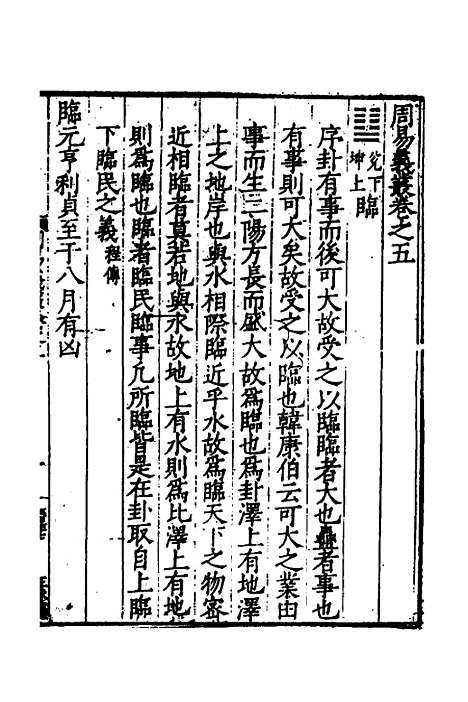 周易義叢卷之五
䷒ 兌下坤上 臨
序卦有事而後可大故受之以臨臨者大也蠱者事也
有事則可大矣故受之以臨也韓康伯云可大之業由
事而生二陽方長而盛大故爲臨也爲卦澤上有地澤
上之地岸也與水相際臨近乎水故爲臨天下之物密
近相臨者莫若地與水故地上有水則爲比澤上有地
則爲臨也臨者臨民臨事凡所臨皆是在卦取自上臨
下臨民之義程傳
臨元亨利貞至于八月有凶